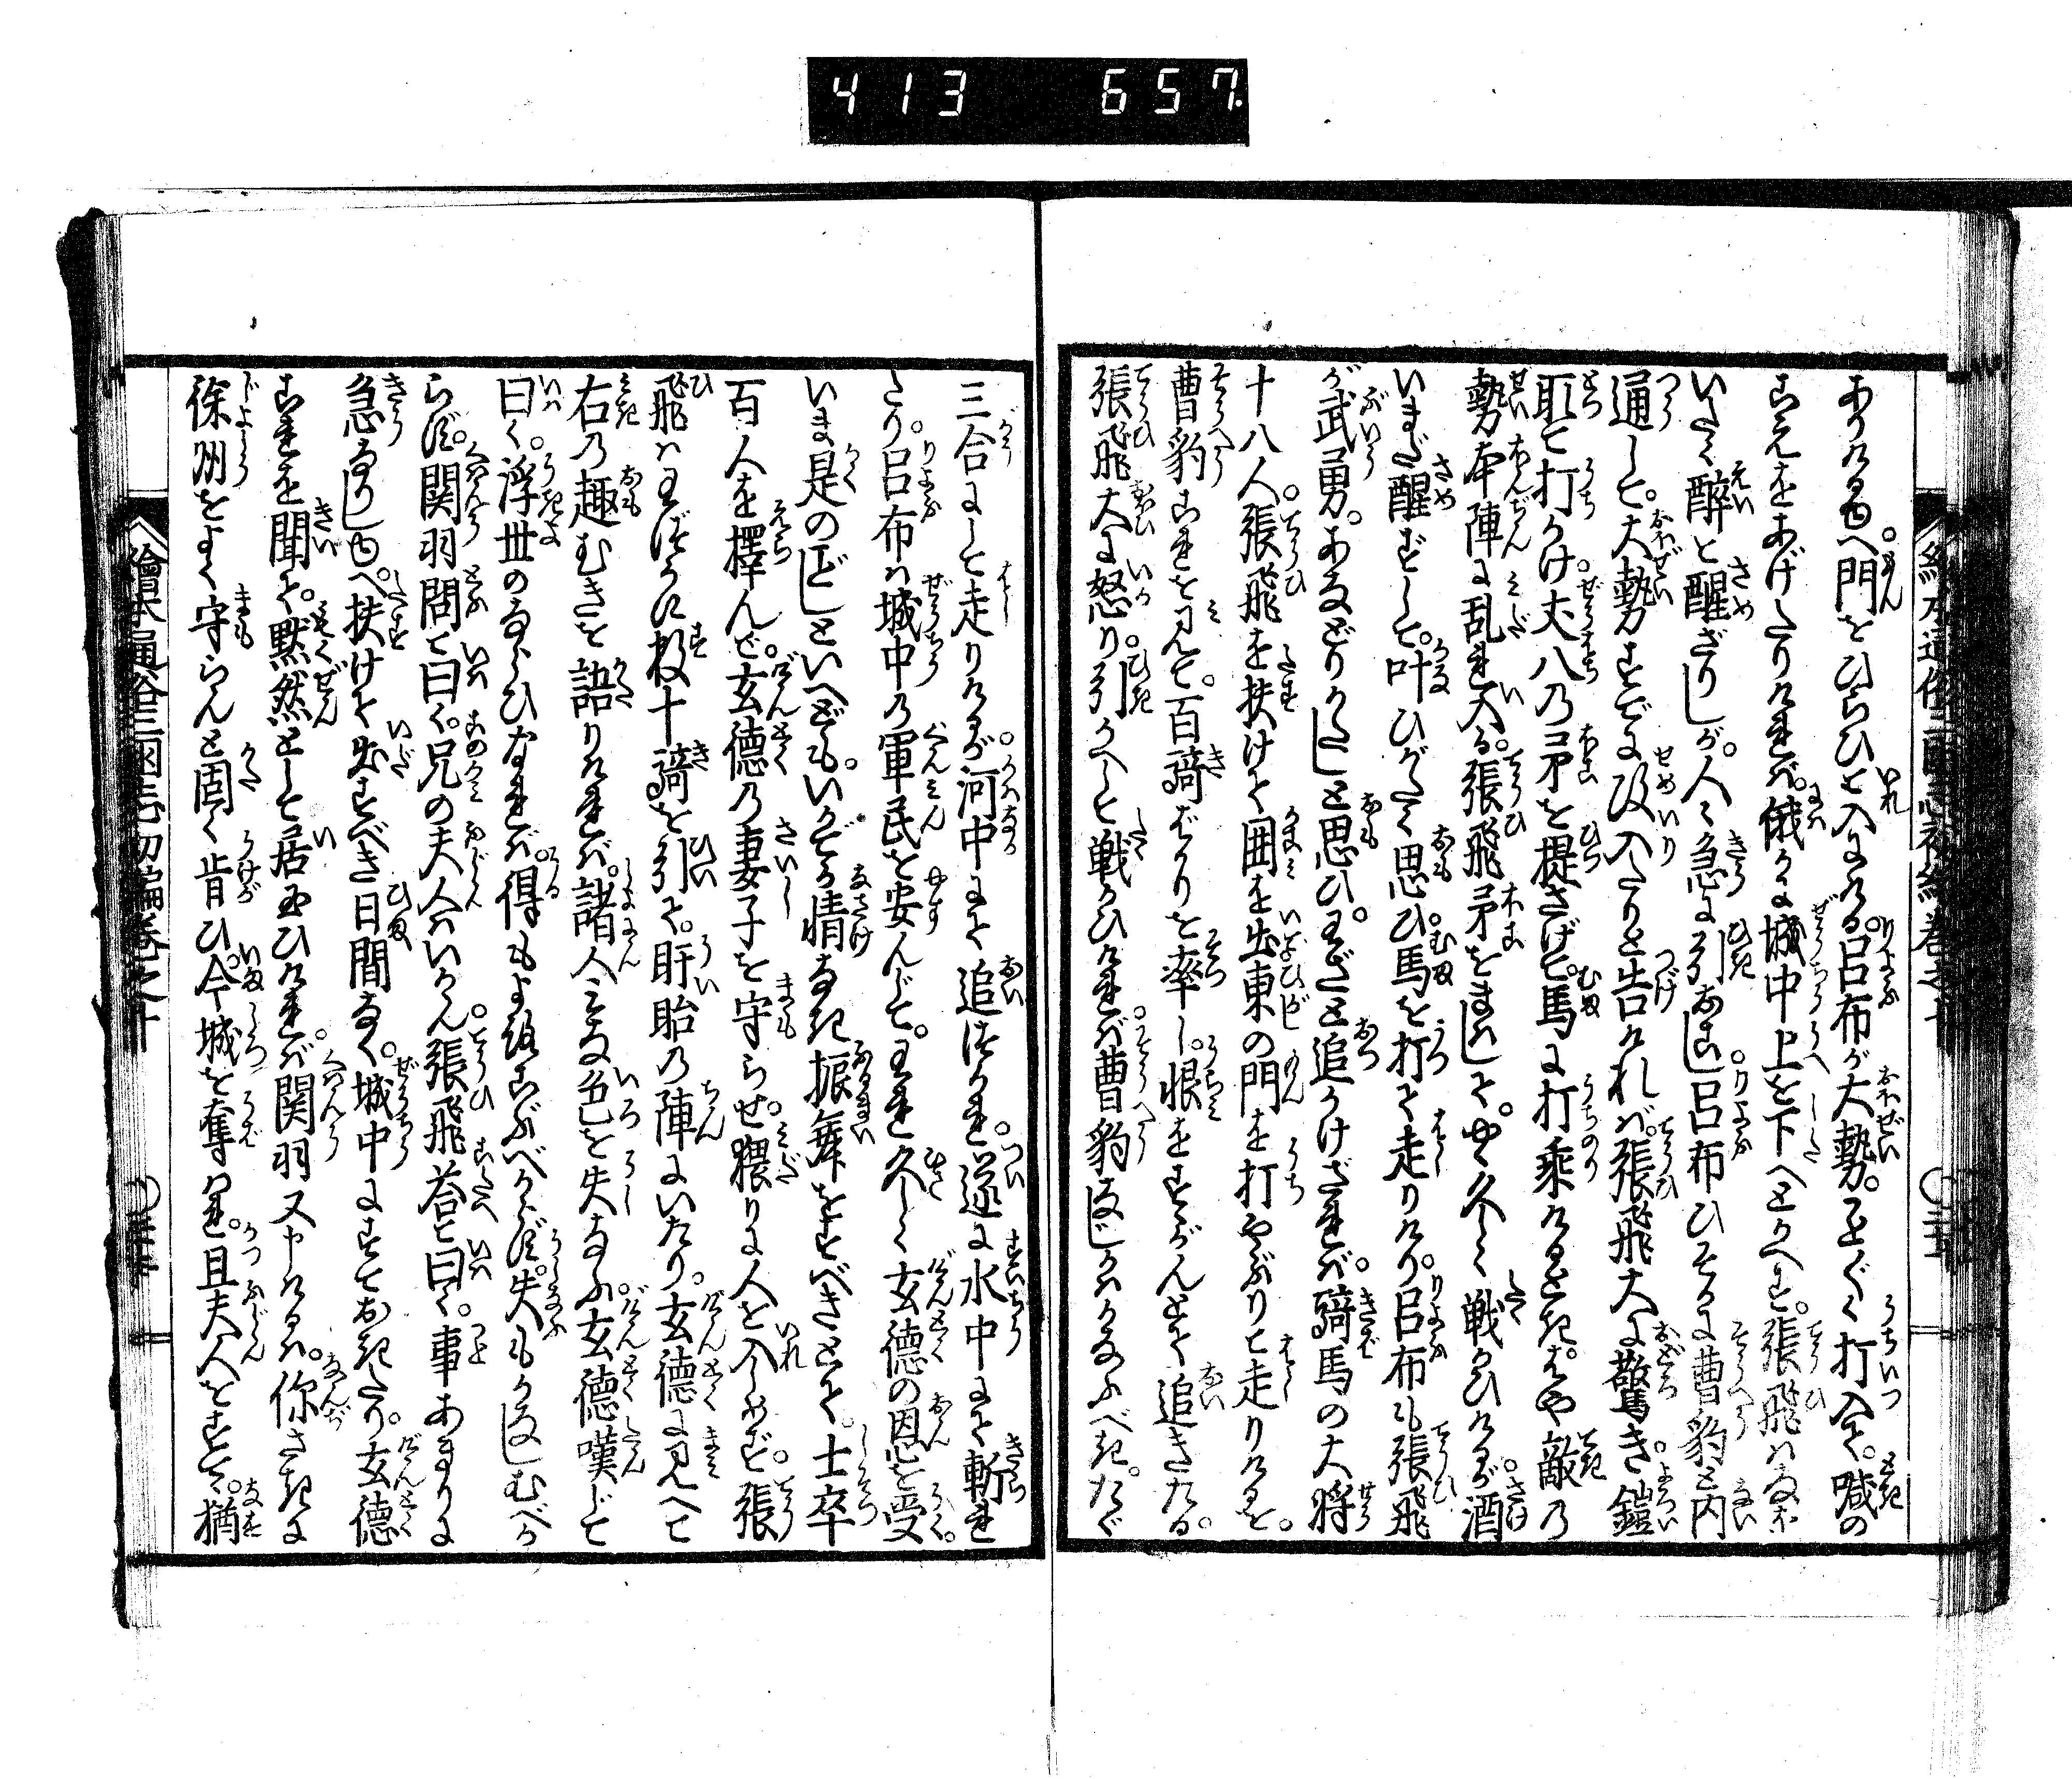 413 657
ありける由へ門をひらひて入にける。呂布が大勢。ことごとく打入て。喊の
こゑをあげたりければ。俄かに城中上を下へとかへす。張飛はなほ
いたく醉て醒ざりしが。人々急に引おこし。呂布ひそかに曹豹と内
通して。大勢すでに攻入たりと告ければ。張飛大に驚き。鎧
取て打かけ。丈八の矛を提さげて。馬に打乗けるとき。はや敵の
勢本陣に乱れ入る。張飛矛をまはして。やゝ久しく戦かひけるが。酒
いまだ醒ずして。叶ひがたく思ひ。馬を打て走りけり。呂布も張飛
が武勇。あなどりがたしと思ひ。わざと追かけざれば。騎馬の大将
十八人。張飛を扶けて囲を出。東の門を打やぶりて走りける。
曹豹これを見て。百騎ばかりを率し。恨をすゝがんとて追きたる。
張飛大に怒り。引かへして戦かひければ。曹豹なじかはかなふべき。たゞ
三合にして走りけるが。河中にて追つかれ。遂に水中にて斬れ
たり。呂布は城中の軍民を安んじて。われ久しく玄徳の恩を受
いま是のごとしといへども。いかでか情なき振舞をすべきとて。士卒
百人を擇んで。玄徳の妻子を守らせ。猥りに人を入しめず。張
飛はわづかに数十騎を引て。盱眙の陣にいたり。玄徳に見へて
右の趣むきを語りければ。諸人みな色を失なふ。玄徳嘆じて
曰く。浮世のならひなれば。得もよろこぶべからず。失もかなしむべか
らず。関羽問て曰く。兄の夫人はいかん。張飛荅て曰く。事あまりに
急なりし由へ。扶けて出すべき日間なく。城中にすておきたり。玄徳
これを聞て。黙然として居玉ひければ。関羽又申けるは。你さきに
徐州をよく守らんと固く肯ひ。今城を奪はれ。且夫人をすて。猶
繪本通俗三國志初編巻之十